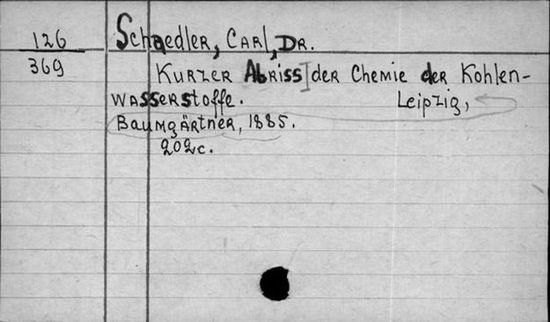 126
Schaedler, Carl, Dr.
369
Kurzer Abriss der Chemie der Kohlen-
wasserstoffe. Leipzig,
Baumgärtner, 1885.
202c.